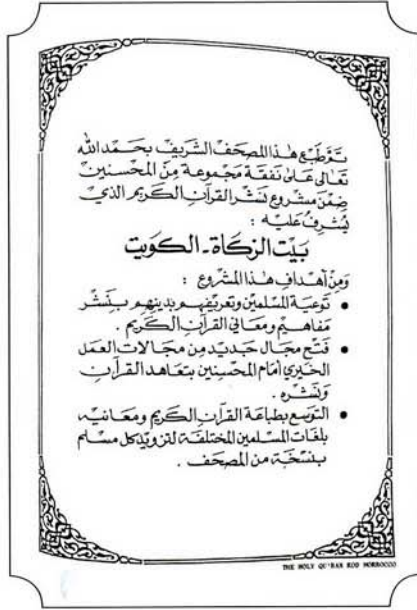 تَمَّ طَبْع هٰذا المصحَف الشريف بحَمْد الله
تعَالى عَلى نفقة مَجموعة مِنَ المحْسنين
ضِمْنَ مشروع لنشر القرآن الكريم الذي
يُشرفُ عَليه :
بَيت الزكاة - الكويت
وَمِنْ أهدافِ هٰذا المشروع :
• تَوعيَة المسْلمين وتعريفهم بدينهم بنشر
مفاهيم ومعَاني القرآن الكريم .
• فَتح مجَال جَديد مِن مجَالات العمَل
الخيري أمَام المحْسِنين بتعَاهد القرآن
وَنشره .
• التوسع بطباعَة القرآن الكريم ومعَانيه
بلغَات المسلمين المختلفَة لتزويد كل مسْلم
بنسْخة من المصحَف .
THE HOLY QU'RAN ROD MORROCCO